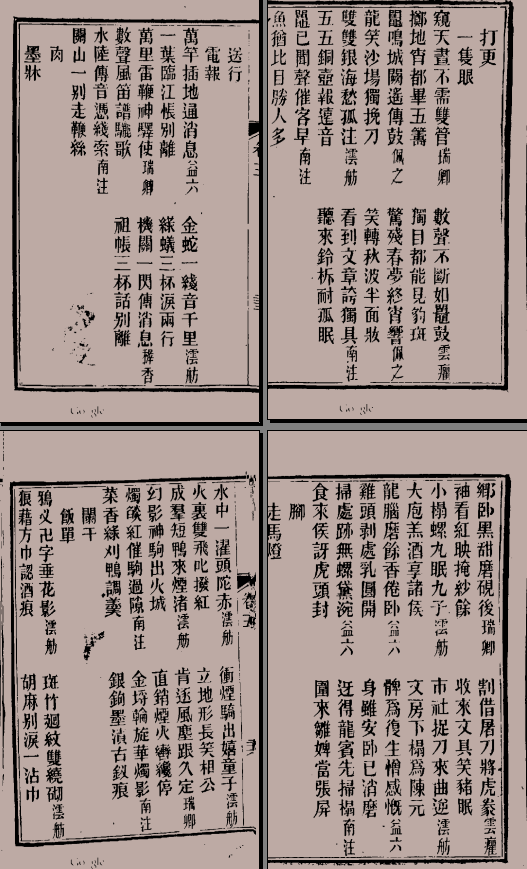 打更
一隻眼
窺天晝不需雙管瑞卿
數聲不斷如鼉鼓雲癯
擲地宵都畢五籌
獨目都能見豹斑
鼉鳴城闕遙傳鼓佩之
驚殘春夢終宵響佩之
龍笑沙場獨挽刀
笑轉秋波半面妝
雙雙銀海愁孤注澐舫
看到文章誇獨具南注
五五銅壺報遠音
聽來鈴柝耐孤眠
鼉已聞聲催客早南注
魚猶比目勝人多
送行
電報
萬竿插地通消息益六
金蛇一綫音千里澐舫
一葉臨江悵別離
綠蟻三杯淚兩行
萬里雷鞭神驛使瑞卿
機關一閃傳消息
數聲風笛譜驪歌
祖帳三杯話別離
水陸傳音憑綫索南注
關山一別走鞭絲
肉
墨牀
鄉卧黑甜磨硯後瑞卿
割借屠刀將虎豢雲癯
袖看紅映掩紗餘
收來文具笑豬眠
小榻螺九眠九子澐舫
市社捉刀來曲逆澐舫
大庖羔酒享諸侯
文房下榻爲陳元
龍腦磨餘香倦卧益六
髀爲復生憎感慨益六
雞頭剥處乳圍開
身雖安卧已消磨
掃處跡無螺黛涴益六
迓得龍賓先掃榻南注
食來侯訝虎頭封
圍來雛婢當張屏
腳
走馬燈
水中一濯頭陀赤澐舫
衝煙騎出嬉童子澐舫
火裏雙飛叱撥紅
立地形長笑相公
成羣短鴨來煙渚澐舫
肯逐風塵跟久定瑞卿
幻影神駒出火城
直銷煙火轡纔停
燭燄紅催駒過隙南注
金埒輪旋華燭影南注
菜香綠刈鴨調羹
銀鉤墨漬古釵痕
闌干
飯單
鴉叉卍字垂花影澐舫
斑竹廻紋雙繞砌澐舫
狼藉方巾認酒痕
胡麻別淚一沾巾